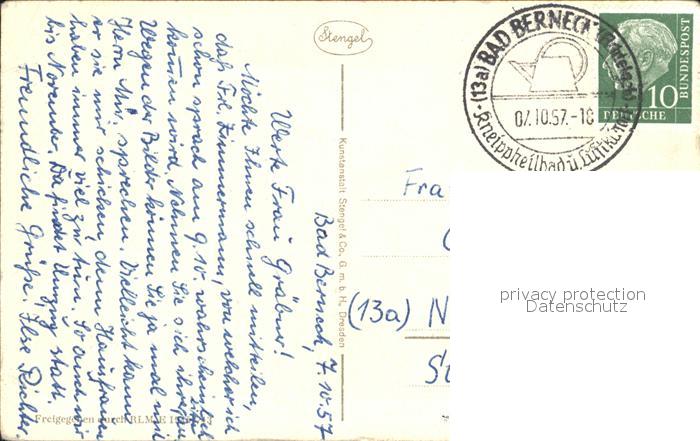 Stengel
BAD BERNECK (Fichtelgeb.)
(13a)
07.10.57.-18
Kneippheilbad u. Luftkurort
10
DEUTSCHE
BUNDESPOST
Kunstanstalt Stengel & Co., G. m. b. H., Dresden
Bad Berneck, 7.10.57
Werte Frau Gräbner!
Möchte Ihnen schnell mitteilen,
daß Frl. Zimmermann, von welcher ich
schon sprach am 9.10. wahrscheinlich
kommen wird. Nehmen Sie sich ihrer
Wegen der Bilder können Sie ja mal mit
Herrn sprechen. Vielleicht kann
er sie mir schicken, denn Hausfrauen
haben immer viel zu tun. So auch wir
bis November. Da findet Umzug statt.
Freundliche Grüße, Ilse Richter
Fra
(13a) N
St
privacy protection
Datenschutz
Freigegeben durch RLM